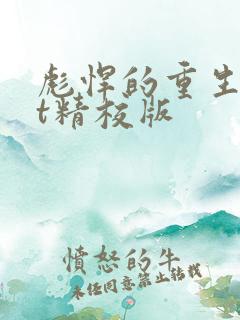 彪悍的重生
t精校版
憤怒的牛
未经同意禁止转载